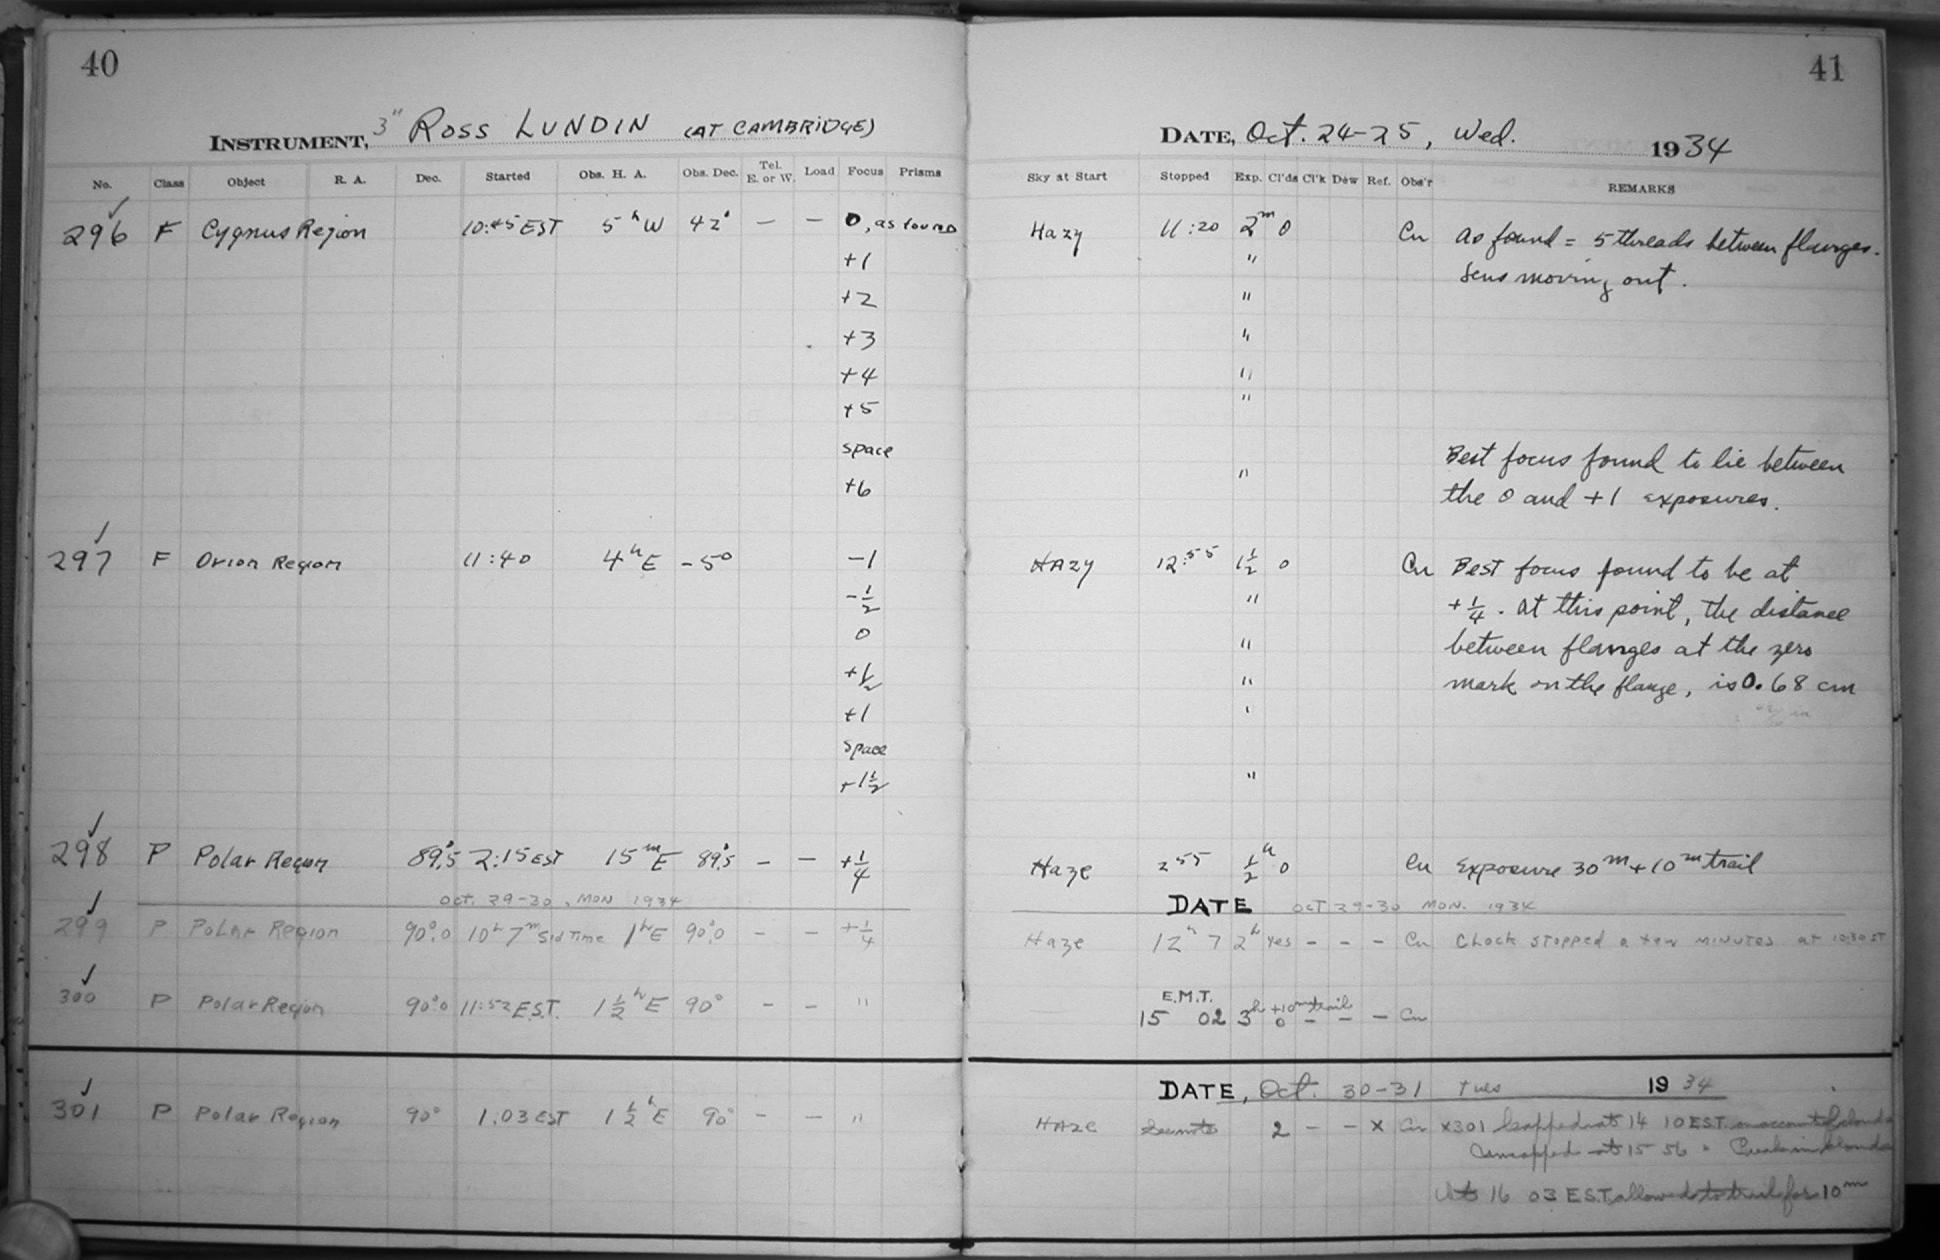 40
INSTRUMENT, 3" ROSS LUNDIN (AT CAMBRIDGE)
No. Class Object R. A. Dec. Started Obs. H. A. Obs. Dec. Tel. E. or W. Load Focus Prisms
296 F Cygnus Region 10:45 EST 5h W 42° — — 0, as found
+1
+2
+3
+4
+5
space
+6
297 F Orion Region 11:40 4h E -5° -1
-1/2
0
+1/2
+1
space
+1 1/2
298 P Polar Region 89.°5 2:15 EST 15m E 89.°5 — — +1/4
OCT. 29-30, MON 1934
299 P Polar Region 90.°0 10h 7m Sid Time 1h E 90.°0 — — +1/4
300 P Polar Region 90.°0 11:52 E.S.T. 1 1/2h E 90° — — "
301 P Polar Region 90° 1.03 EST 1 1/2h E 90° — — "
41
DATE, Oct. 24-25, Wed. 1934
Sky at Start Stopped Exp. Cl'ds Cl'k Dew Ref. Obs'r REMARKS
Hazy 11:20 2m 0 Cn As found = 5 threads between flanges.
" Lens moving out.
"
"
"
"
Best focus found to lie between
" the 0 and +1 exposures.
HAZY 12:55 1 1/2 0 Cn Best focus found to be at
" +1/4. At this point, the distance
" between flanges at the zero
" mark on the flange, is 0.68 cm
'
"
Haze 2 55 1/2h 0 Cn Exposure 30m + 10m trail
DATE OCT 29-30 MON. 1934
Haze 12h 7 2h Yes - - - Cn Clock stopped a few minutes at 10:30 ST
E.M.T.
15 02 3h +10m trail 0 - - - Cn
DATE, Oct. 30-31 Tues 1934
HAZE 2 - - X Cn X301 Capped at 14 10 EST on account of clouds
Uncapped at 15 56 Break in clouds
At 16 03 E.S.T. allowed to trail for 10m